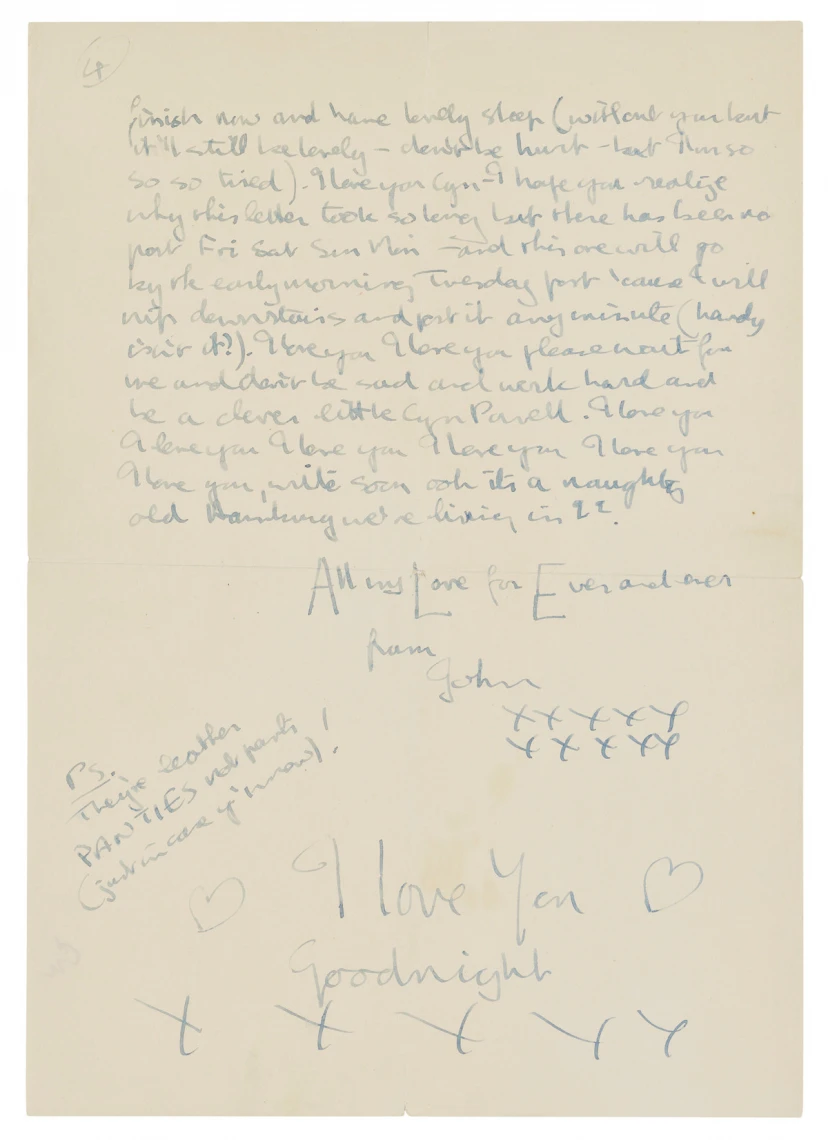 4
finish now and have lovely sleep (without you but
it'll still be lovely – don't be hurt – but I'm so
so so tired). I love you Cyn – I hope you realize
why this letter took so long but there has been no
post Fri Sat Sun Mon – and this one will go
by the early morning Tuesday post 'cause I will
nip downstairs and post it any minute (handy
isn't it?). I love you I love you please wait for
me and don't be sad and work hard and
be a clever little Cyn Powell. I love you
I love you I love you I love you I love you
I love you, write soon ooh it's a naughty
old Hamburg we're living in!!.
All my Love for Ever and ever
from
John
xxxxx
xxxxx
P.S.
They're leather
PANTIES not pants
(just in case y'know)!
I love You
Goodnight
X X X X X